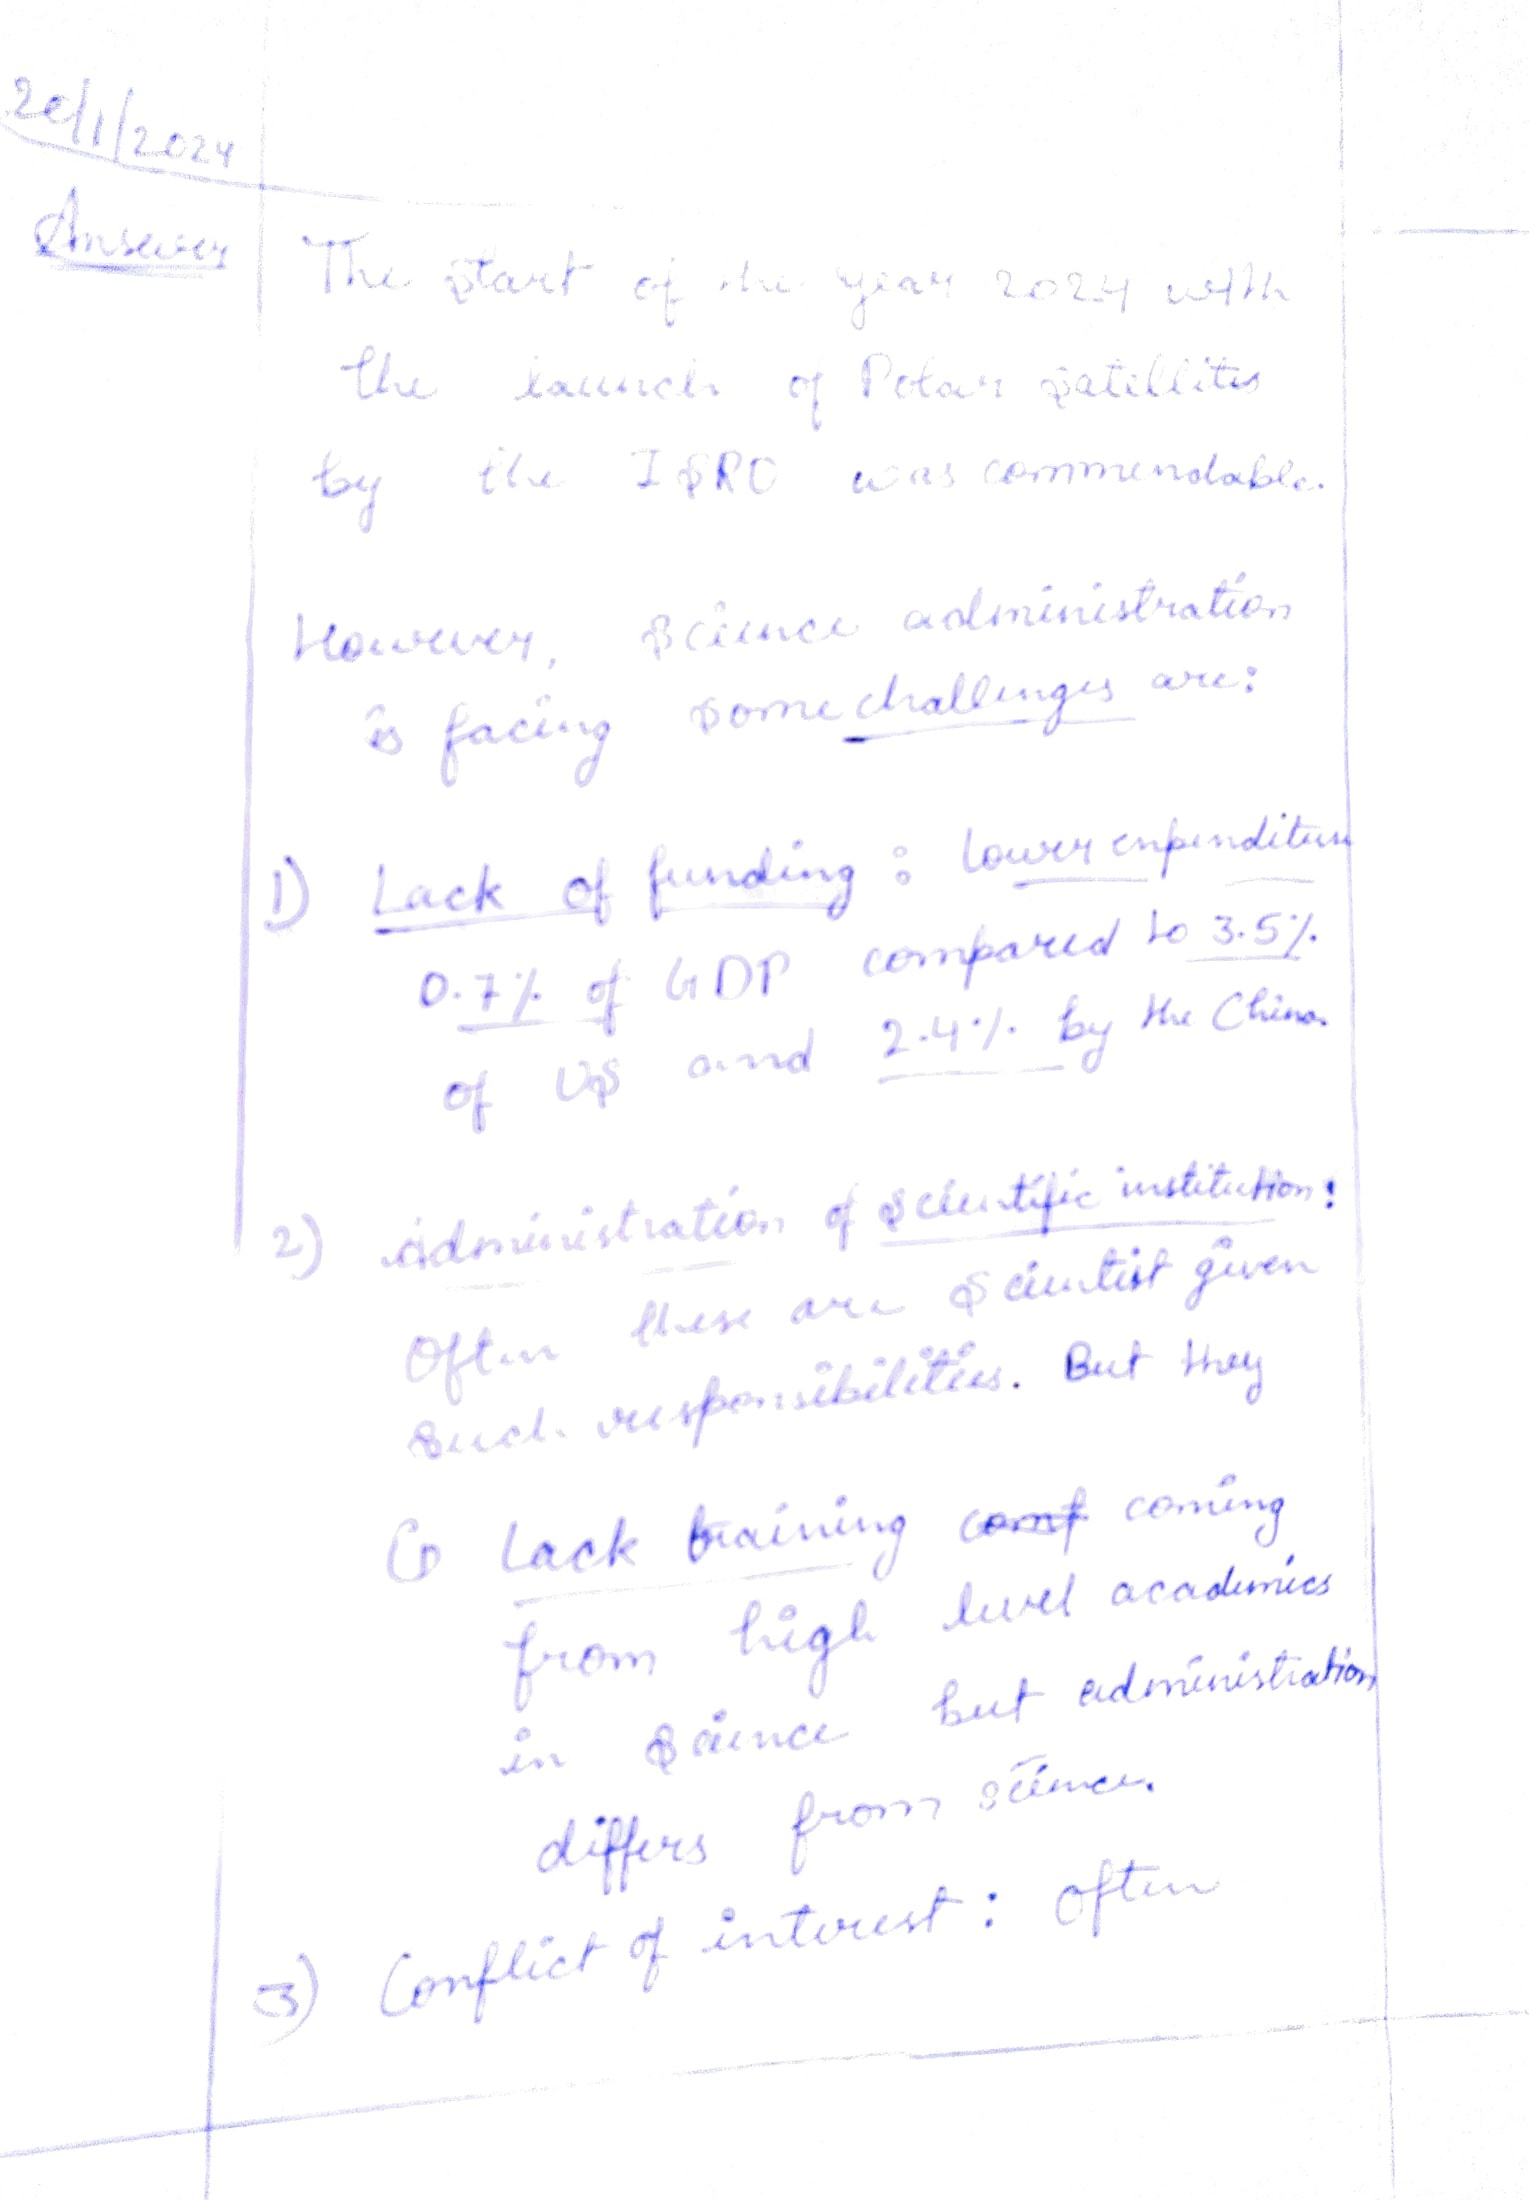 20/1/2024
Answer
The start of the year 2024 with
the launch of Polar satellites
by the ISRO was commendable.
However, science administration
is facing some challenges are:
1) Lack of funding : lower expenditure
0.7% of GDP compared to 3.5%
of US and 2.4% by the China
2) administration of scientific institution:
Often these are scientist given
such responsibilities. But they
Lack training comf coming
from high level academics
in science but administration
differs from science.
3) Conflict of interest : Often